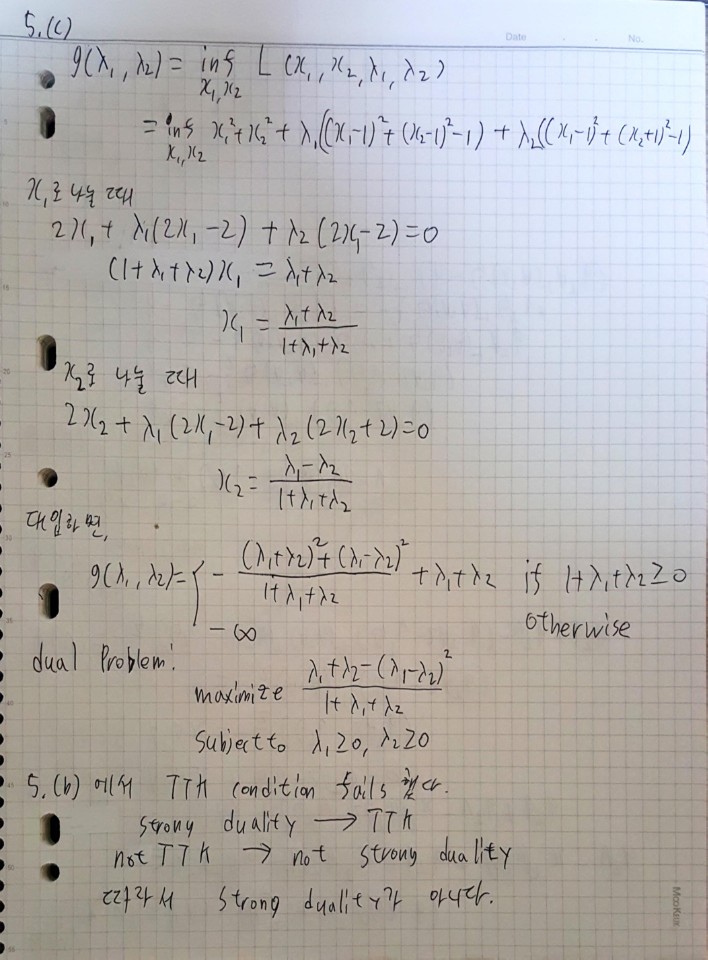 5.(c)
Date No.
g(λ₁, λ₂) = inf L(x₁, x₂, λ₁, λ₂)
x₁,x₂
= inf x₁²+x₂² + λ₁((x₁-1)²+(x₂-1)²-1) + λ₂((x₁-1)²+(x₂+1)²-1)
x₁,x₂
x₁로 나눌 때
2x₁+ λ₁(2x₁-2) + λ₂(2x₁-2)=0
(1+λ₁+λ₂)x₁ = λ₁+λ₂
x₁ = (λ₁+λ₂)/(1+λ₁+λ₂)
x₂로 나눌 때
2x₂+ λ₁(2x₁-2)+ λ₂(2x₂+2)=0
x₂ = (λ₁-λ₂)/(1+λ₁+λ₂)
대입하면,
g(λ₁, λ₂)= { - ((λ₁+λ₂)²+(λ₁-λ₂)²)/(1+λ₁+λ₂) + λ₁+λ₂ if 1+λ₁+λ₂≥0
-∞ otherwise
dual Problem:
maximize (λ₁+λ₂-(λ₁-λ₂)²)/(1+λ₁+λ₂)
Subject to λ₁≥0, λ₂≥0
5.(b)에서 TTK condition fails 했다.
strong duality → TTK
not TTK → not strong duality
따라서 strong duality가 아니다.
MooKnx